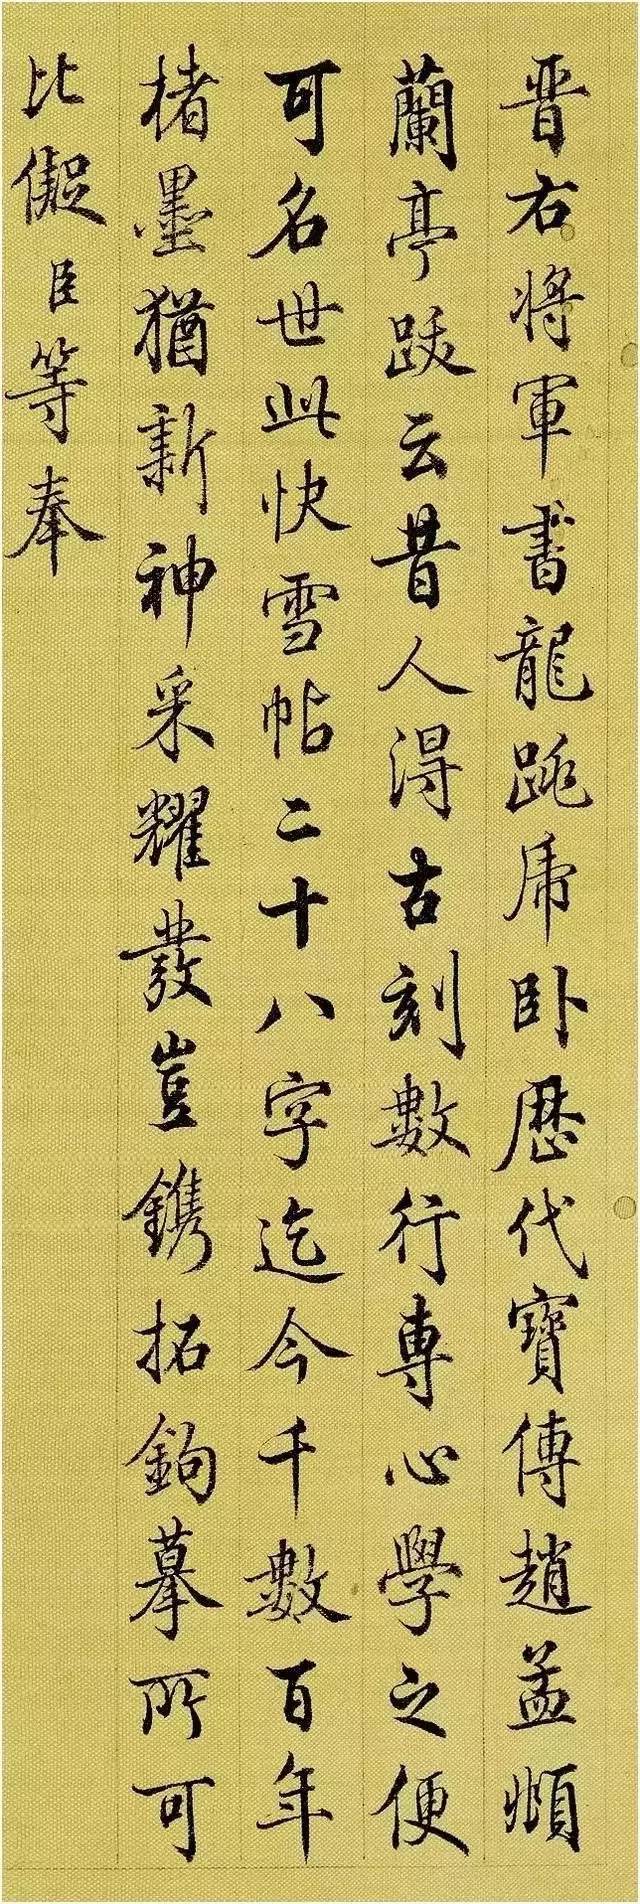 晋右将軍書龍跳虎卧歷代寶傳趙孟頫
蘭亭跋云昔人得古刻數行專心學之便
可名世此快雪帖二十八字迄今千數百年
楮墨猶新神采耀發豈鐫拓鉤摹所可
比儗臣等奉